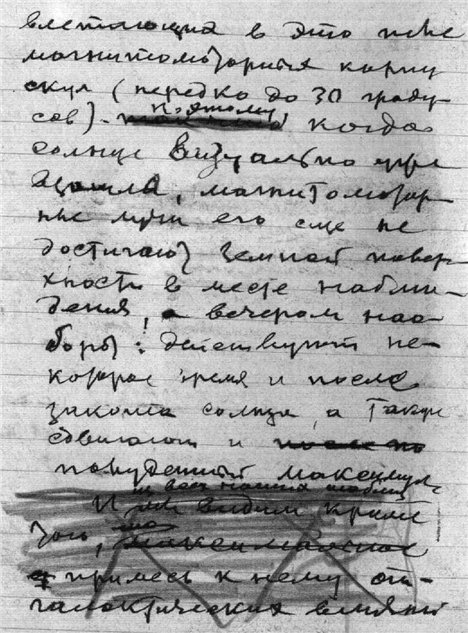 влетающих в это поле
магнитомоторных корпу
скул (нередко до 30 граду
сов). поэтому когда
солнце визуально уже
взошло, магнитомотор-
ные лучи его еще не
достигают земной повер-
хности в месте наблю-
дения, а вечером нао-
борот: действуют не-
которое время и после
заката солнца, а также
сдвигают и
полуденный максимум.
И мы видим кроме
того, что
примесь к нему от
галактических влияний